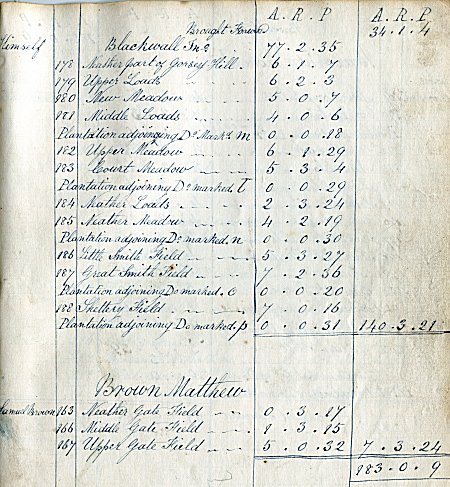 A. R. P. A. R. P.
Brought Forward 34. 1. 4
Himself Blackwall Jno. 77. 2. 35
178 Neather part of Gorsey Hill. 6. 1. 7
179 Upper Loads 6. 2. 3
180 New Meadow 5. 0. 7
181 Middle Loads 4. 0. 6
Plantation adjoining Do. Markd. m 0. 0. 18
182 Upper Meadow 6. 1. 29
183 Court Meadow 5. 3. 4
Plantation adjoining Do. marked. 0. 0. 29
184 Neather Loads 2. 3. 24
185 Neather Meadow 4. 2. 19
Plantation adjoining Do. marked. n 0. 0. 30
186 Little Smith Field 5. 3. 27
187 Great Smith Field 7. 2. 36
Plantation adjoining Do marked. o 0. 0. 20
188 Field 7. 0. 16
Plantation adjoining Do marked. p 0. 0. 31 140. 3. 21
Brown Matthew
Samuel Brown 163 Neather Gate Field 0. 3. 17
166 Middle Gate Field 1. 3. 15
167 Upper Gate Field 5. 0. 32 7. 3. 24
183. 0. 9